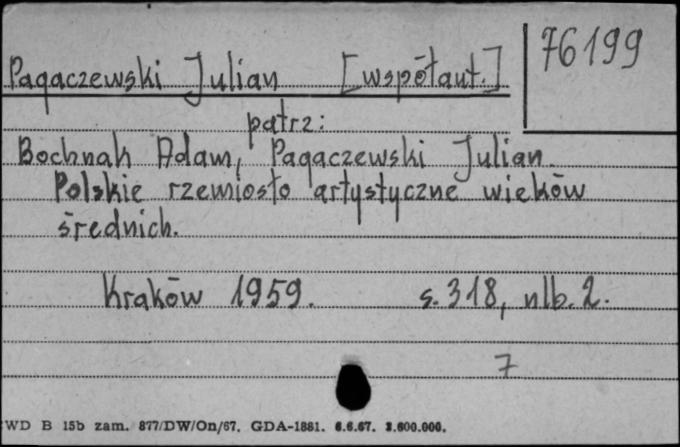 76199
Pagaczewski Julian [współaut.]
patrz:
Bochnak Adam, Pagaczewski Julian.
Polskie rzemiosło artystyczne wieków
średnich.
Kraków 1959. s. 318, nlb. 2.
7
WD B 15b zam. 877/DW/On/67. GDA-1881. 6.6.67. 3.600.000.